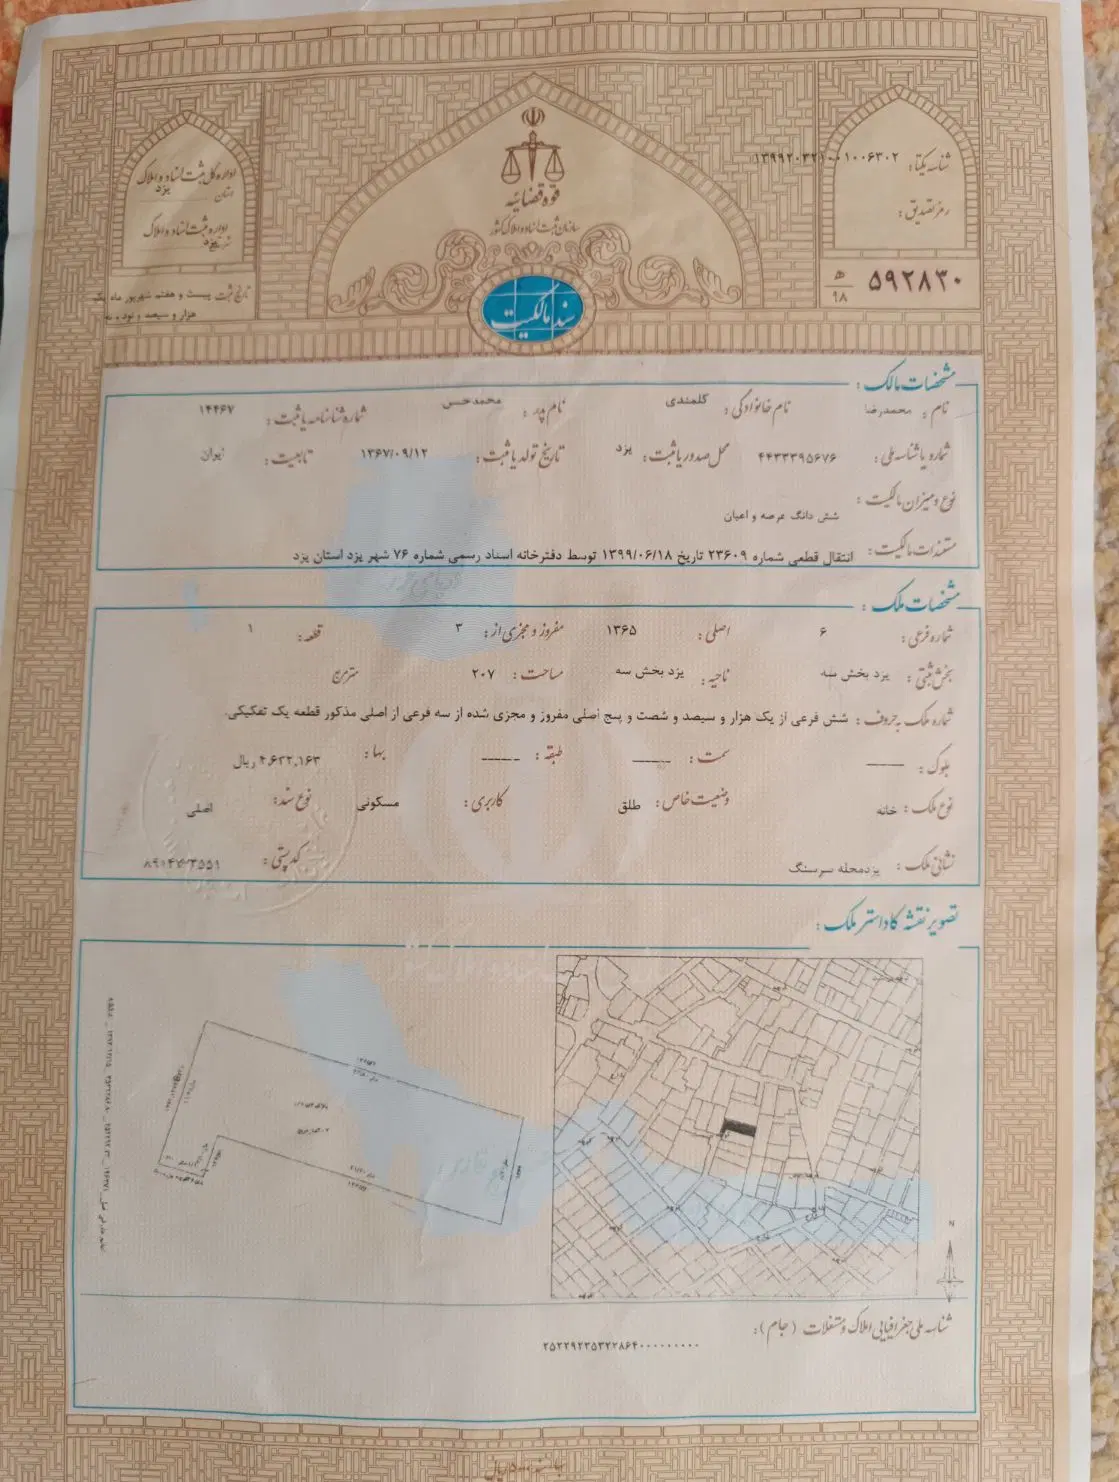 قوه قضائیه
سازمان ثبت اسناد و املاک کشور
اداره کل ثبت اسناد و املاک
استان یزد
اداره ثبت اسناد و املاک
یزد
شناسه یکتا: ۱۳۹۹۲۰۳۲۱۰۰۱۰۰۶۳۰۲
رمز تصدیق:
۵۹۲۸۳۰ ه‍/۹۸
تاریخ ثبت بیست و هفتم شهریور ماه یک
هزار و سیصد و نود و نه
سند مالکیت
مشخصات مالک:
نام: محمدرضا نام خانوادگی: گلمندی نام پدر: محمدحسن شماره شناسنامه یا ثبت: ۱۴۴۶۷
شماره یا شناسه ملی: ۴۴۳۳۳۹۵۶۷۶ محل صدور یا ثبت: یزد تاریخ تولد یا ثبت: ۱۳۶۷/۰۹/۱۲ تابعیت: ایران
نوع و میزان مالکیت: شش دانگ عرصه و اعیان
مستندات مالکیت: انتقال قطعی شماره ۲۳۶۰۹ تاریخ ۱۳۹۹/۰۶/۱۸ توسط دفترخانه اسناد رسمی شماره ۷۶ شهر یزد استان یزد
مشخصات ملک:
شماره فرعی: ۶ اصلی: ۱۳۶۵ مفروز و مجزی از: ۳ قطعه: ۱
بخش ثبتی: یزد بخش سه ناحیه: یزد بخش سه مساحت: ۲۰۷ مترمربع
شماره ملک به حروف: شش فرعی از یک هزار و سیصد و شصت و پنج اصلی مفروز و مجزی شده از سه فرعی از اصلی مذکور قطعه یک تفکیکی.
بلوک: —— سمت: —— طبقه: —— بها: ۴,۶۳۲,۱۶۳ ریال
نوع ملک: خانه وضعیت خاص: طلق کاربری: مسکونی نوع سند: اصلی
نشانی ملک: یزدمحله سرسنگ کدپستی:
تصویر نقشه کاداستر ملک:
N
شناسه ملی جغرافیایی املاک و مستغلات (جام):
۲۵۲۲۹۲۳۵۳۲۲۸۶۴۰۰۰۰۰۰۰۰۰۰